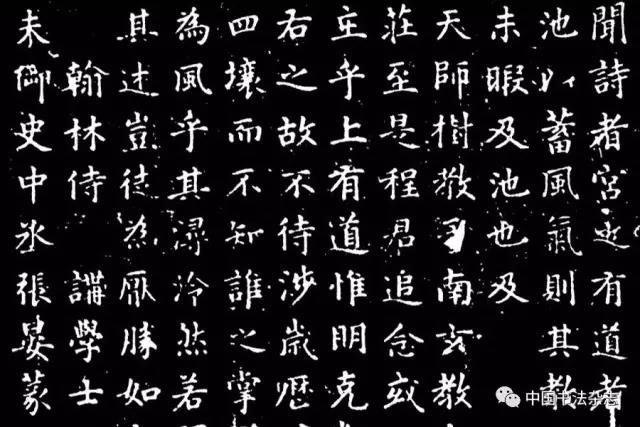 聞詩者宮近有道者
池以蓄風氣則其教
未暇及池也及
天師樹教南玄教
莊至是程君追念或
主乎上有道惟明克
右之故不待涉歲歷
四壤而不知誰之掌
為風乎其泠然若
其述豈徒為厥勝如
翰林侍講學士
未御史中丞張晏篆
中国书法杂志